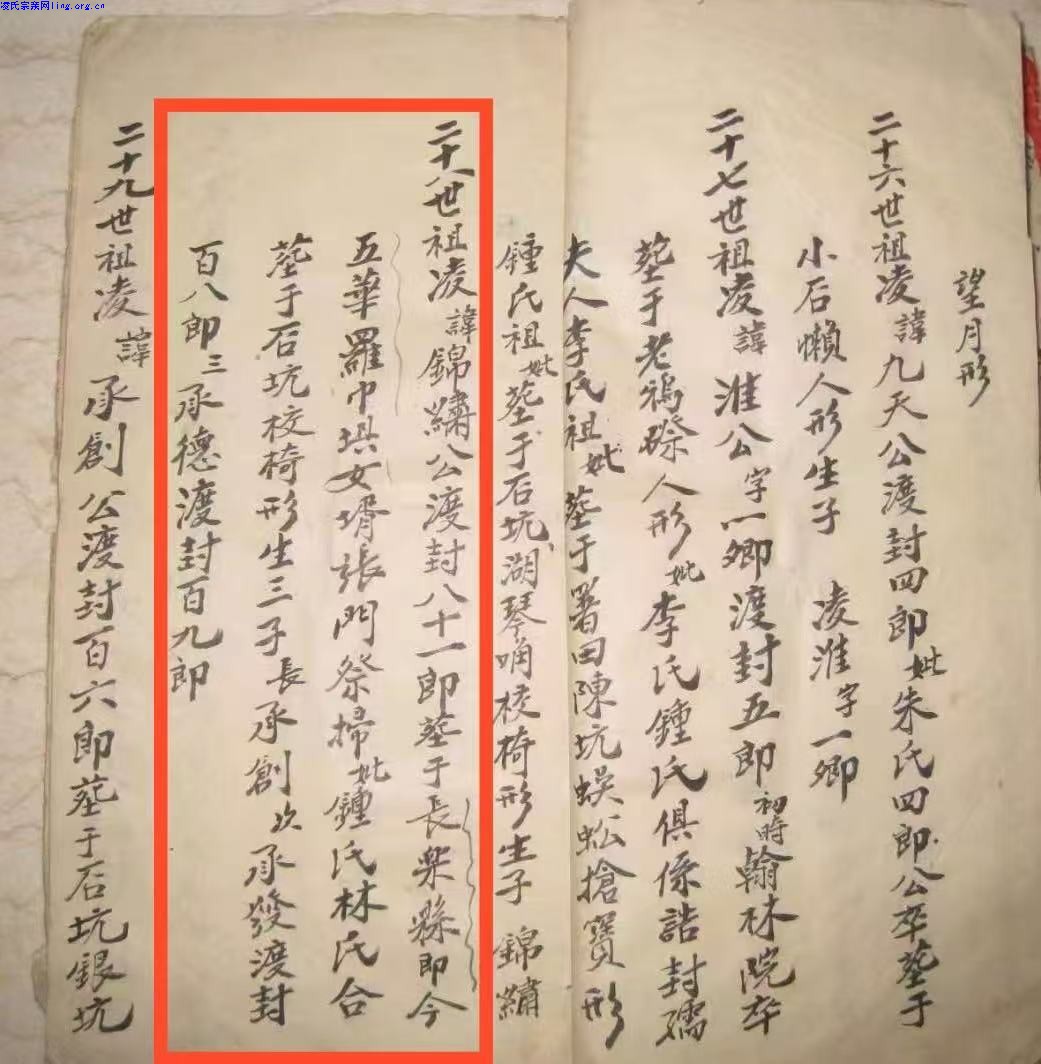 凌氏宗亲网ling.org.cn
望月形
二十六世祖凌諱九天公渡封四郎妣朱氏四郎公卒塟于
小石懶人形生子 凌淮字一卿
二十七世祖凌諱淮公字一卿渡封五郎初時翰林院卒
塟于老鴉磜人形妣李氏鍾氏俱係誥封孺
夫人李氏祖妣塟于署田陳坑蜈蚣搶寶形
鍾氏祖妣塟于石坑湖琴嘴校椅形生子 錦繡
二十八世祖凌諱錦繡公渡封八十一郎塟于長樂縣即今
五華羅巾埧女壻張門祭掃妣鍾氏林氏合
塟于石坑校椅形生三子長承創次承發渡封
百八郎三承德渡封百九郎
二十九世祖凌諱承創公渡封百六郎塟于石坑銀坑